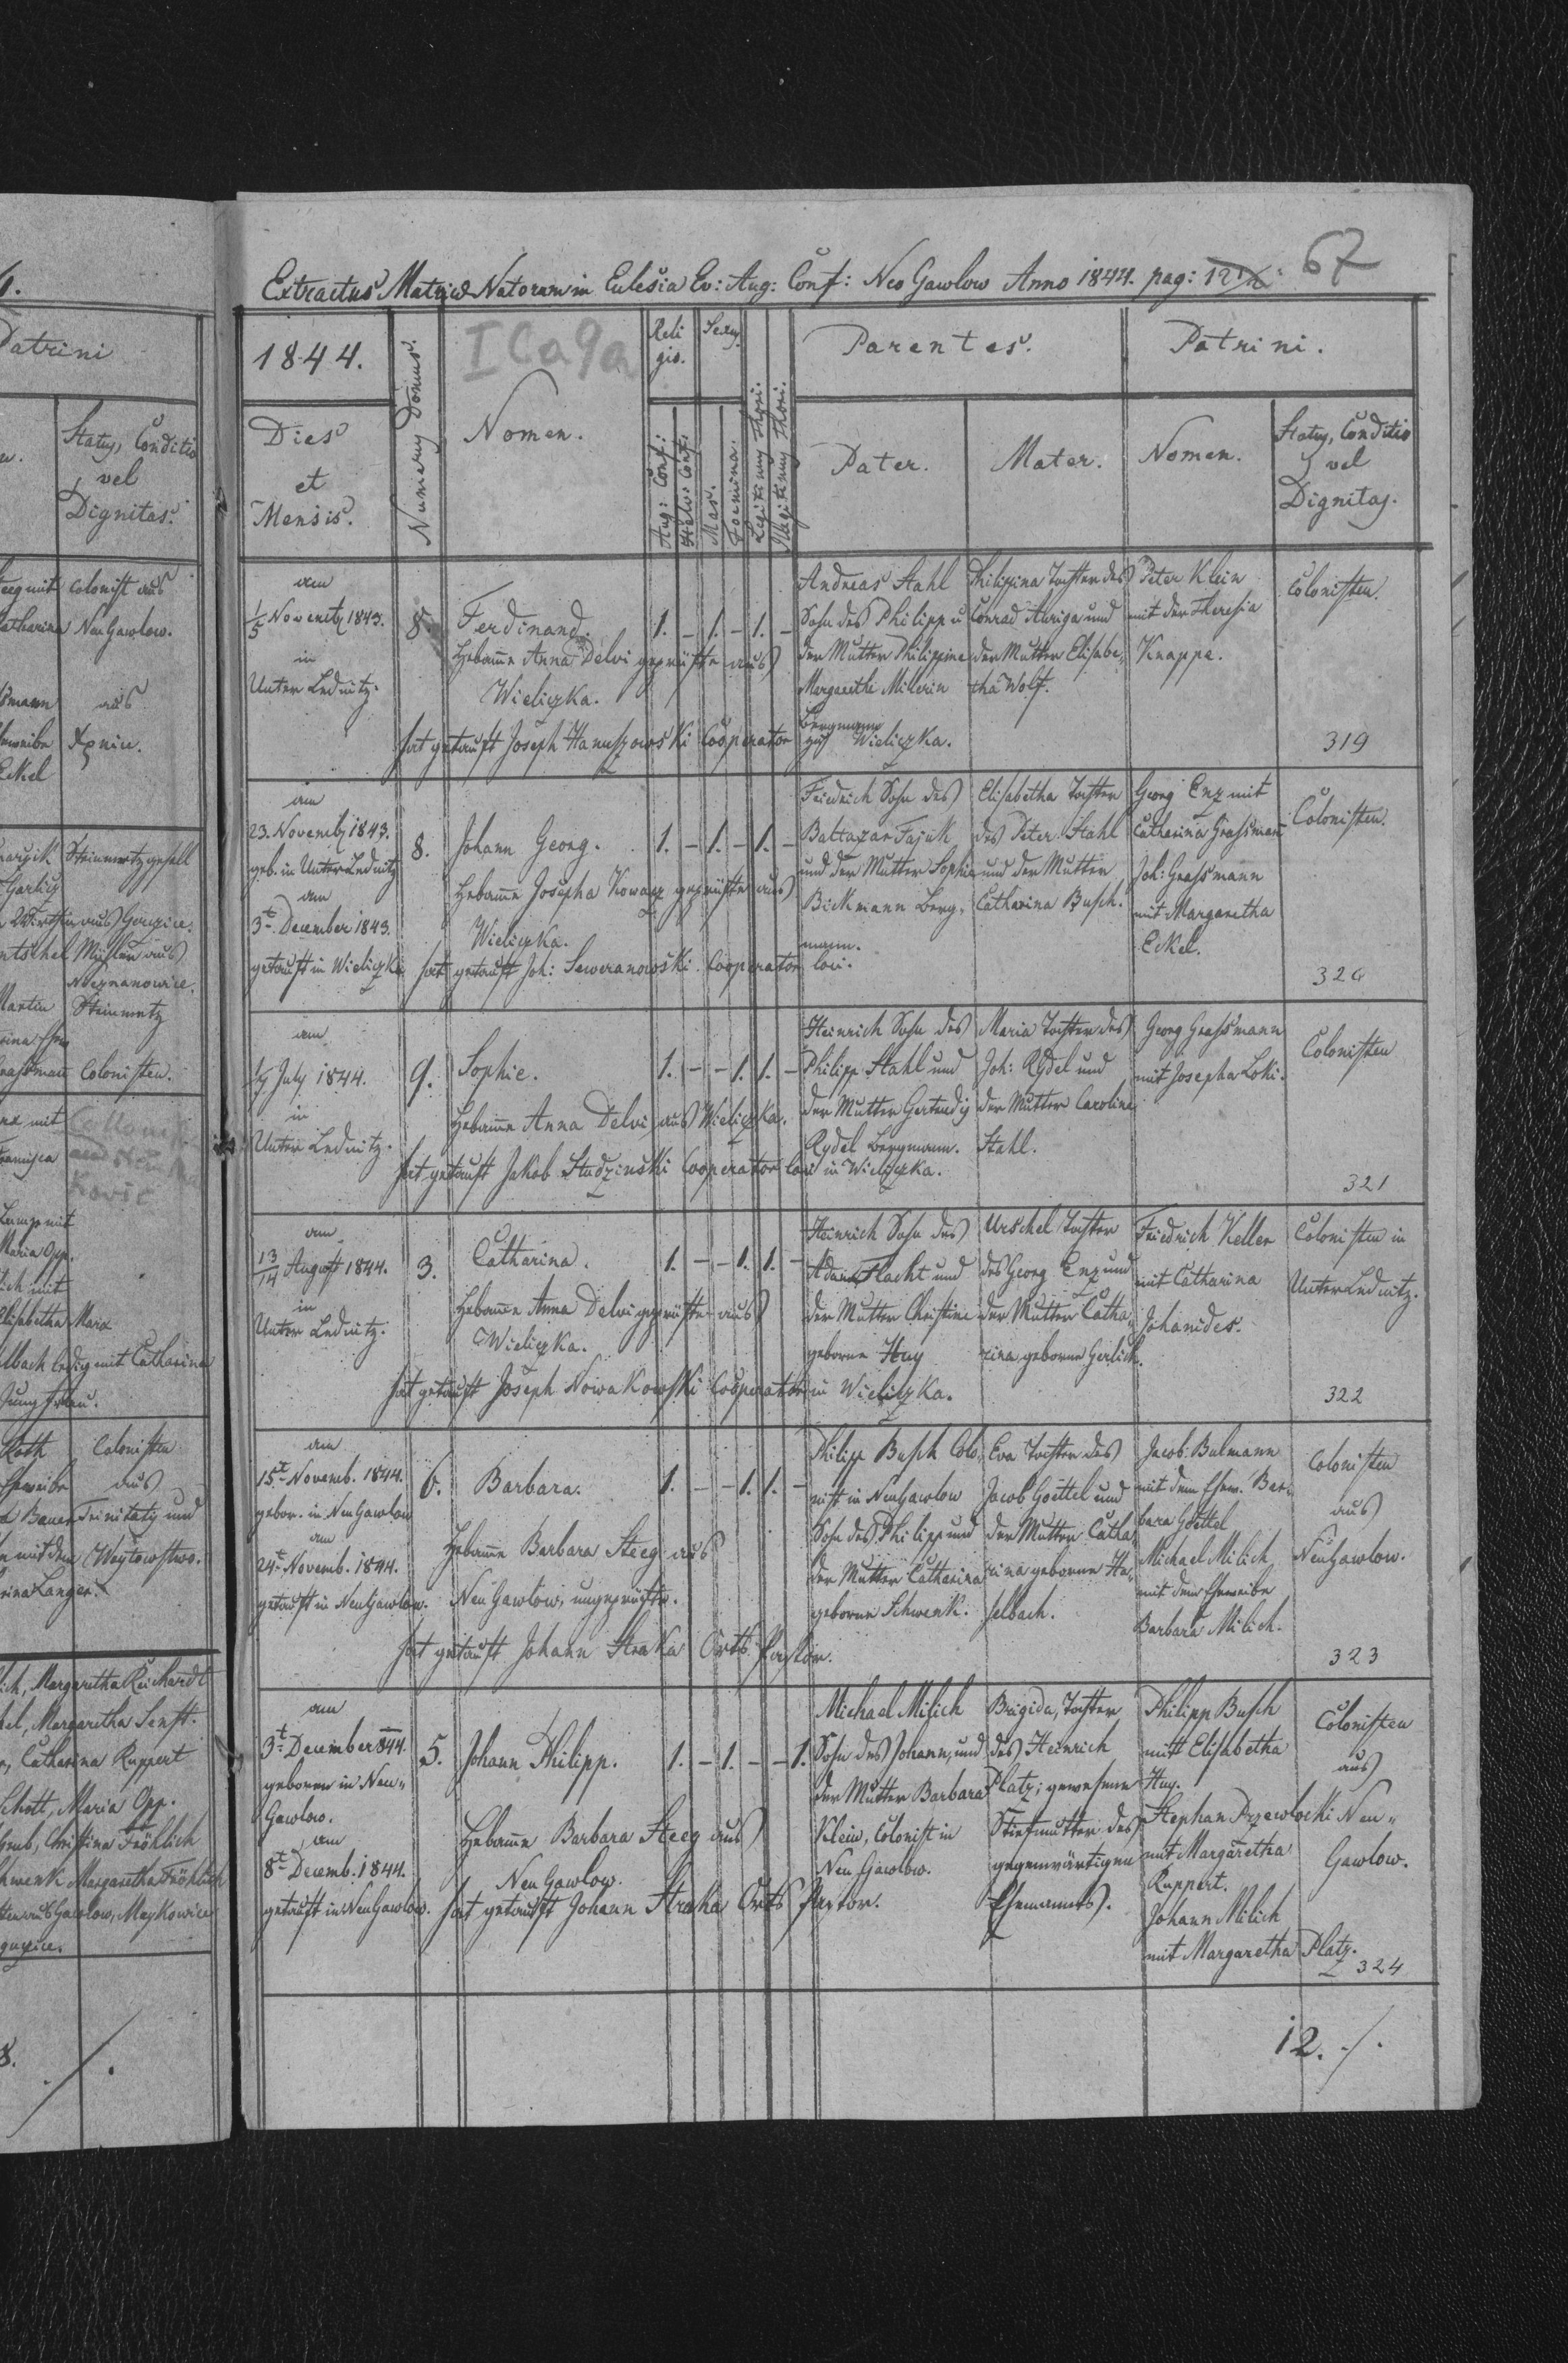 Extractus Matricae Natorum in Eclesia Ev: Aug: Conf: Neo Gawlow Anno 1844. pag: 12
67
1844.
Numerus Domus.
I Ca 9a
Religio.
Sexus.
Parentes.
Patrini.
Dies
et
Mensis.
Nomen.
Aug: Conf:
Helv: Conf:
Mas.
Foemina.
Legitimy Thori.
Illegitimy Thori.
Pater.
Mater.
Nomen.
Status, Conditio
vel
Dignitas.
am
1/5 Novembr 1843.
in
Unter Lednitz.
8.
Ferdinand.
1. - 1. - 1. -
Hebame Anna Delvi geprüfte aus
Wieliczka.
hat getauft Joseph Hanuszowski Cooperator
Andreas Stahl
Sohn des Philipp u
der Mutter Philippine
Margarethe Milerin
Bergmann
zu Wieliczka.
Philippina Tochter des
Conrad Auriga und
der Mutter Elisabe„
tha Wolf.
Peter Klein
mit der Theresia
Knappe.
Colonisten.
319
am
23. Novembr 1843.
geb. in Unter Lednitz
am
3t December 1843.
getauft in Wieliczka
8.
Johann Georg.
1. - 1. - 1. -
Hebame Josepha Kowacz geprüfte aus
Wieliczka.
hat getauft Joh: Seweranowski Cooperator loci.
Friedrich Sohn des
Baltazar Fajuk
und der Mutter Sophia
Bickmann Berg„
mann.
Elisabetha Tochter
des Peter Stahl
und der Mutter
Catharina Busch.
Georg Enz mit
Catharina Graßmann
Joh: Graßmann
mit Margaretha
Eckel.
Colonisten.
320
am
July 1844.
in
Unter Lednitz.
9.
Sophie.
1. - - 1. 1. -
Hebame Anna Delvi aus Wieliczka.
hat getauft Jakob Studzinski Cooperator loci in Wieliczka.
Heinrich Sohn des
Philipp Stahl und
der Mutter Gertrudis
Rydel Bergmann.
Maria Tochter des
Joh: Rydel und
der Mutter Caroline
Stahl.
Georg Graßmann
mit Josepha Loki.
Colonisten
321
am
13/14 August 1844.
in
Unter Lednitz.
3.
Catharina.
1. - - 1. 1. -
Hebame Anna Delvi geprüfte aus
Wieliczka.
hat getauft Joseph Nowakowski Cooperator in Wieliczka.
Heinrich Sohn des
Adam Flacht und
der Mutter Christine
geborne Huy
Urschel Tochter
des Georg Enz und
der Mutter Catha„
rina geborne Gerlich.
Friedrich Keller
mit Catharina
Johanides.
Colonisten in
Unter Lednitz.
322
am
15t Novemb. 1844.
gebor. in NeuGawlow
am
24t Novemb. 1844.
getauft in NeuGawlow.
6.
Barbara.
1. - - 1. 1. -
Hebame Barbara Steeg aus
Neu Gawlow, ungeprüfte.
hat getauft Johann Straka Orts Pastor.
Philipp Busch Colo„
nist in NeuGawlow
Sohn des Philipp und
der Mutter Catharina
geborne Schwenk.
Eva Tochter des
Jacob Goettel und
der Mutter Catha„
rina geborne Ha„
selbach.
Jacob Bulmann
mit dem Ehew. Bar„
bara Goettel
Michael Milich
mit dem Eheweibe
Barbara Milich.
Colonisten
aus
NeuGawlow.
323
am
3t December 844.
geboren in Neu„
Gawlow.
am
8t Decemb. 1844.
getauft in NeuGawlow.
5.
Johann Philipp.
1. - 1. - - 1.
Hebame Barbara Steeg aus
Neu Gawlow.
hat getauft Johann Straka Orts Pastor.
Michael Milich
Sohn des Johann, und
der Mutter Barbara
Klein, Colonist in
Neu Gawlow.
Brigida, Tochter
des Heinrich
Platz; gewesene
Stiefmutter des
gegenwärtigen
Ehemannes.
Philipp Busch
mit Elisabetha
Huy.
Stephan Przewlocki
mit Margaretha
Ruppert.
Johann Milich
mit Margaretha Platz.
Colonisten
aus
Neu„
Gawlow.
324
12. ./.
Patrini
Status, Conditio
vel
Dignitas.
Colonist aus
Catharina Neu Gawlow.
aus
Eckel
Steinmetzgesell
Martin Steinmetz
Colonisten.
Maria Opp.
Elisabetha Maria
ledig mit Catharina
Jungfrau.
Roth Colonisten
Eheweibe aus
Bauer Trinitatis und
Woytowstwo.
Langer.
Margaretha Reichardt
Margaretha Senft.
Catharina Ruppert
Schott, Maria Opp.
Christina Fröhlich
Schwenk Margaretha Fröhlich
Gawlow, Meykowice
8. ./.